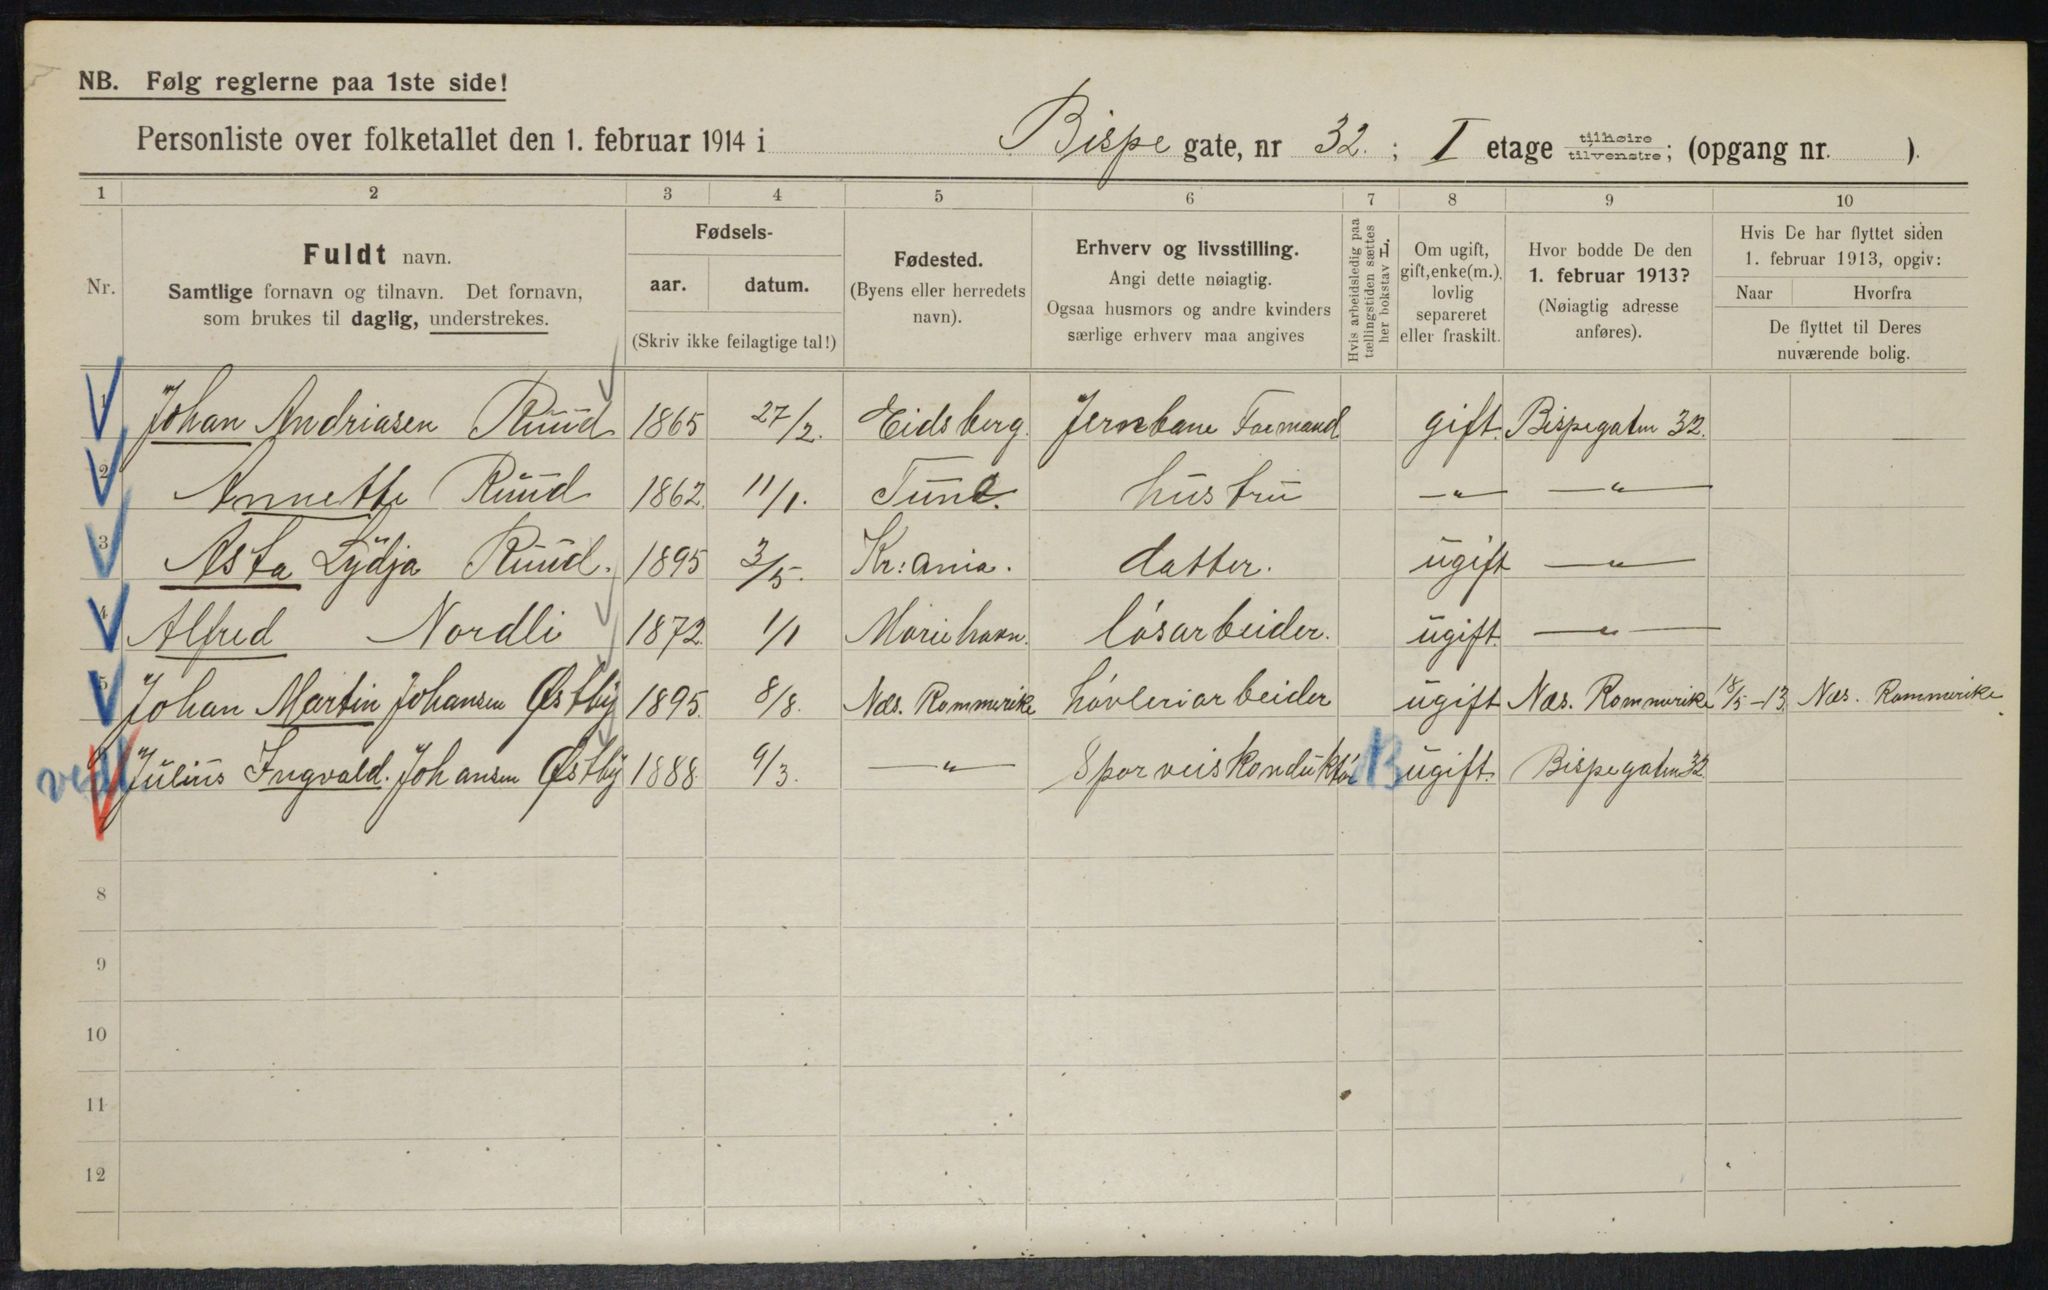 NB. Følg reglerne paa 1ste side!
Personliste over folketallet den 1. februar 1914 i Bispe gate, nr 32. ; I etage tilhøire tilvenstre; (opgang nr. ).
1 2 3 4 5 6 7 8 9 10
Nr.
Fuldt navn.
Samtlige fornavn og tilnavn. Det fornavn,
som brukes til daglig, understrekes.
Fødsels-
aar. datum.
(Skriv ikke feilagtige tal!)
Fødested.
(Byens eller herredets
navn).
Erhverv og livsstilling.
Angi dette nøiagtig.
Ogsaa husmors og andre kvinders
særlige erhverv maa angives
Hvis arbeidsledig paa
tællingstiden sættes
her bokstav L.
Om ugift,
gift, enke(m.),
lovlig
separeret
eller fraskilt.
Hvor bodde De den
1. februar 1913?
(Nøiagtig adresse
anføres).
Hvis De har flyttet siden
1. februar 1913, opgiv:
Naar Hvorfra
De flyttet til Deres
nuværende bolig.
1 Johan Andriasen Ruud 1865 27/2. Eidsberg. Jernbane Formand gift. Bispegaten 32.
2 Annette Ruud 1862. 11/1. Tune. hustru —"— —"—
3 Asta Lydja Ruud. 1895 3/5. Kr:ania. datter. ugift —"—
4 Alfred Nordli 1872. 1/1 Mariehavn. løsarbeider. ugift. —"—
5 Johan Martin Johansen Østby 1895. 8/8. Næs. Rommerike høvleriarbeider ugift Næs. Rommerike 18/5-13. Næs. Rommerike.
Julius Ingvald. Johansen Østby 1888. 9/3. —"— Sporveiskonduktør B ugift. Bispegaten 32
8
9
10
11
12